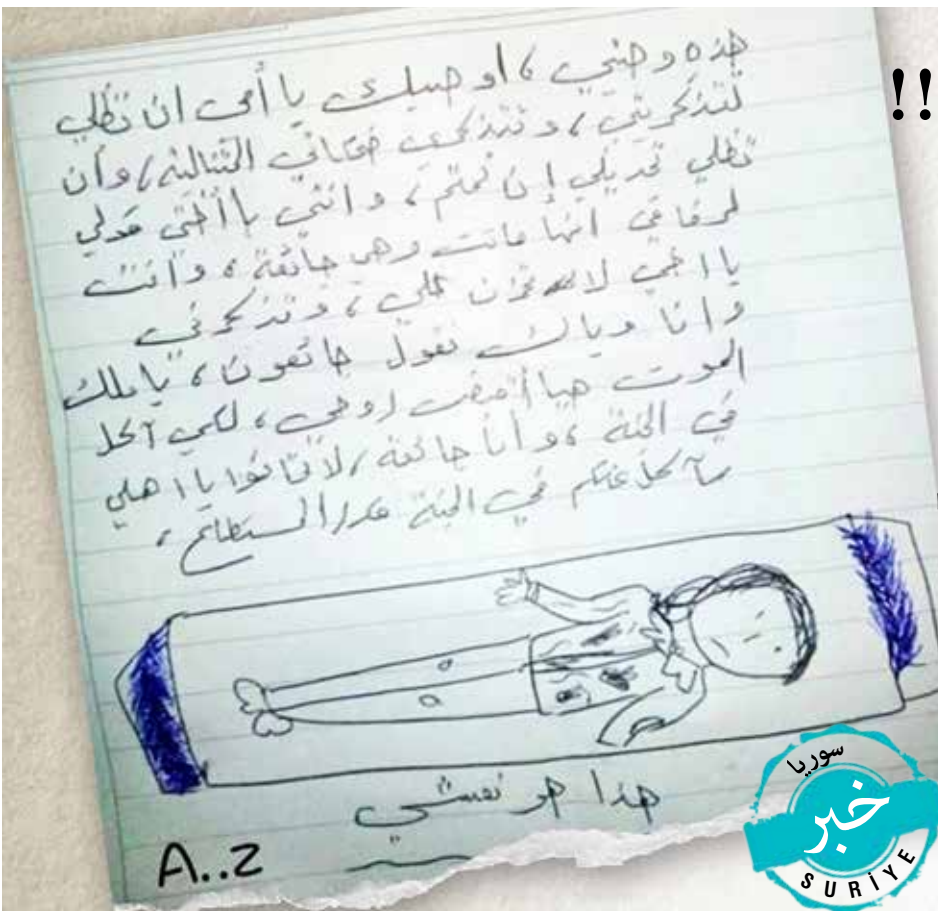 !!
هذه وصيتي ، اوصيك يا أمي ان تظلي
لتذكريني ، وتتذكري ضحكاتي التتالية ، وأن
تظلي تحديلي إن نمتم ، وانتي يا أختي قولي
لرفاقي انها ماتت وهي جائعة ، وأنت
يا اخي لا تحزن علي ، وتذكرني
وانا وياك نقول جائعون ، يا ملك
الموت هيا أقبض روحي ، لكي آكل
في الجنة ، وأنا جائعة ، لا تخافوا يا اهلي
سآكل عنكم في الجنة قدر المستطاع ،
هذا هو نعشي
A..Z
سوريا
خبر
SURİYE